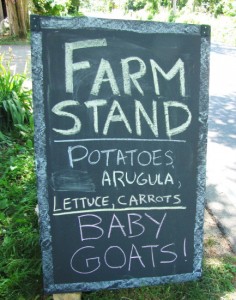 FARM
STAND
POTATOES
ARUGULA,
LETTUCE, CARROTS
BABY
GOATS!